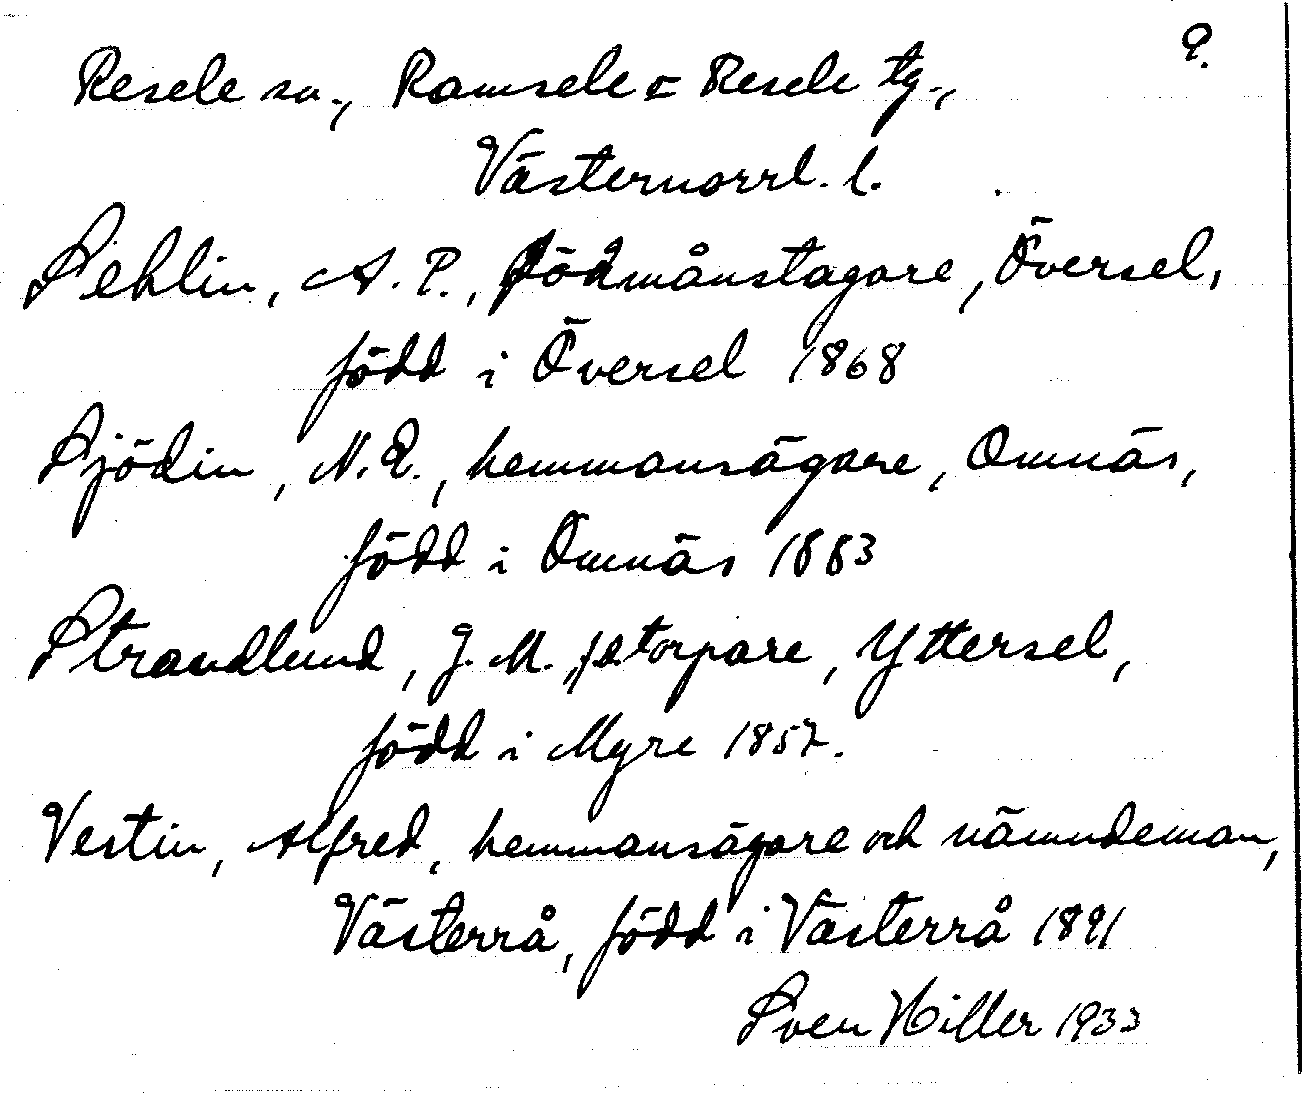 9.
Resele sn., Ramsele o Resele tg.,
Västernorrl. l.
Sehlin, A. P., födomånstagare, Översel,
född i Översel 1868
Sjödin, N. E., hemmansägare, Omnäs,
född i Omnäs 1883
Strandlund, J. M., fd torpare, Yttersel,
född i Myre 1857.
Vestin, Alfred, hemmansägare och nämndeman,
Västerrå, född i Västerrå 1891
Sven Hiller 1933